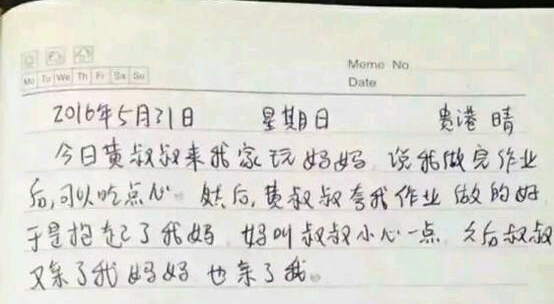 Memo No
Mo Tu We Th Fr Sa Su
Date
2016年5月31日 星期日 贵港 晴
今日黄叔叔来我家玩妈妈，说我做完作业
后,可以吃点心。然后,黄叔叔夸我作业做的好
于是抱起了我妈 妈叫叔叔小心一点 之后叔叔
又亲了我妈妈也亲了我。